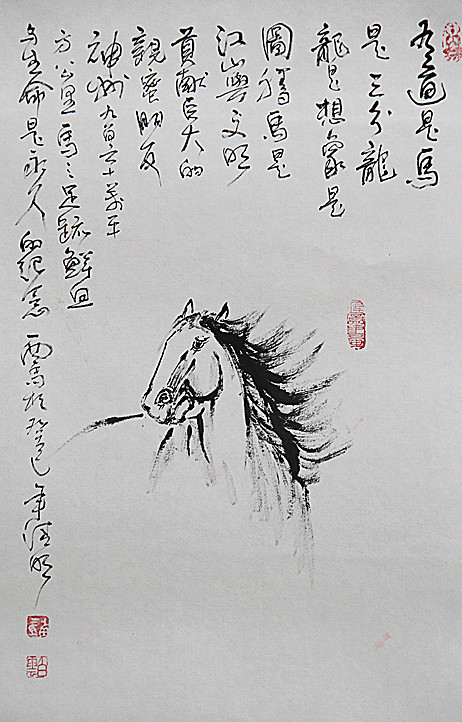 有道是馬
是三分龍
龍是想象是
圖騰馬是
江山與文明
貢獻巨大的
親蜜朋友
神州九百六十萬平
方公里馬之足跡鮮血
與生命是永久的紀念 於癸巳年清明